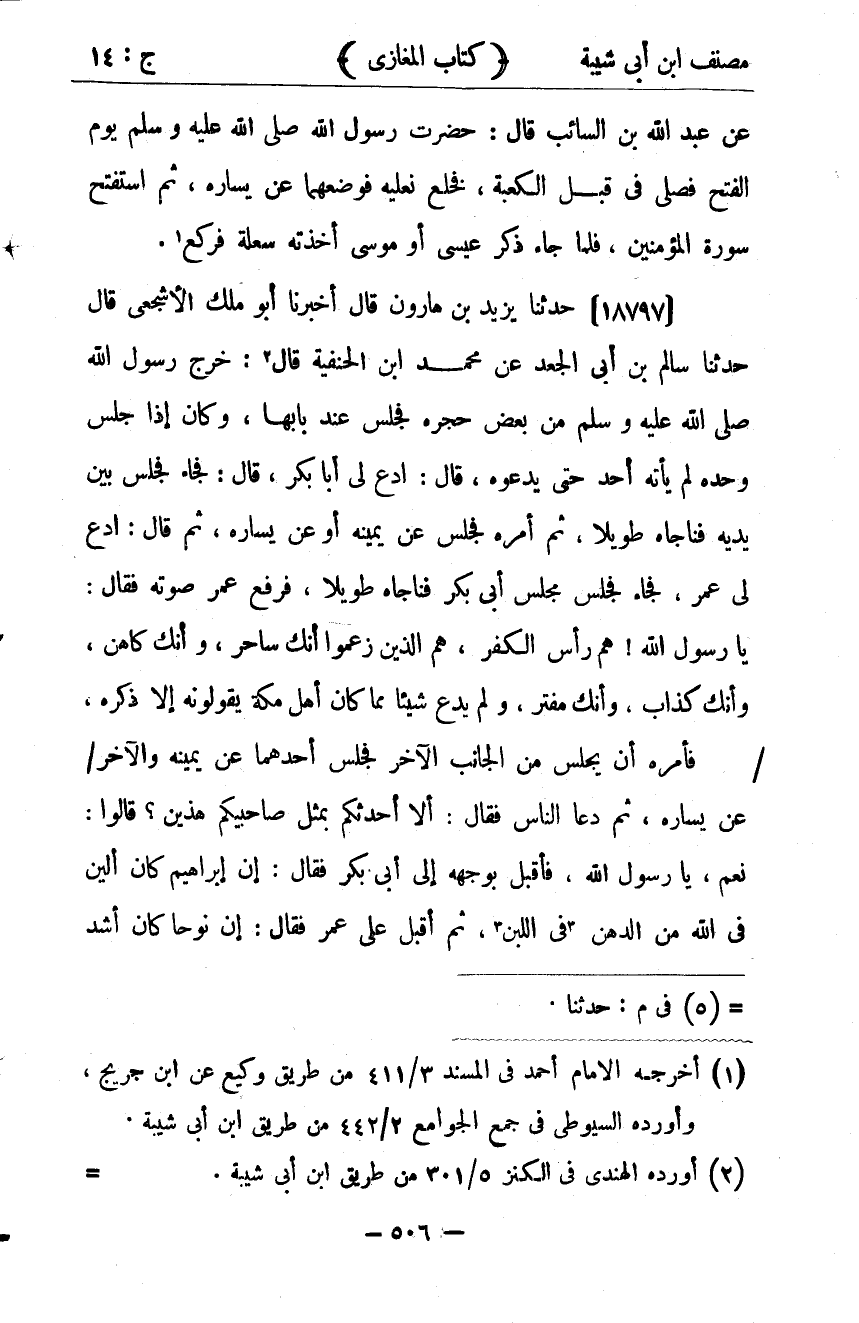 مصنف ابن أبى شيبة ﴿ كتاب المغازى ﴾ ج : ١٤
عن عبد الله بن السائب قال : حضرت رسول الله صلى الله عليه و سلم يوم
الفتح فصلى فى قبـل الكعبة ، فخلع نعليه فوضعهما عن يساره ، ثم استفتح
سورة المؤمنين ، فلما جاء ذكر عيسى أو موسى أخذته سعلة فركع١ .
[١٨٧٩٧] حدثنا يزيد بن هارون قال أخبرنا أبو ملك الأشجعى قال
حدثنا سالم بن أبى الجعد عن محمـد ابن الحنفية قال٢ : خرج رسول الله
صلى الله عليه و سلم من بعض حجره فجلس عند بابها ، وكان إذا جلس
وحده لم يأته أحد حتى يدعوه ، قال : ادع لى أبا بكر ، قال : فجاء فجلس بين
يديه فناجاه طويلا ، ثم أمره فجلس عن يمينه أو عن يساره ، ثم قال : ادع
لى عمر ، فجاء فجلس مجلس أبى بكر فناجاه طويلا ، فرفع عمر صوته فقال :
يا رسول الله ! هم رأس الكفر ، هم الذين زعموا أنك ساحر ، و أنك كاهن ،
وأنك كذاب ، وأنك مفتر ، و لم يدع شيئا مما كان أهل مكة يقولونه إلا ذكره ،
/ فأمره أن يجلس من الجانب الآخر فجلس أحدهما عن يمينه والآخر/
عن يساره ، ثم دعا الناس فقال : ألا أحدثكم بمثل صاحبيكم هذين ؟ قالوا :
نعم ، يا رسول الله ، فأقبل بوجهه إلى أبى بكر فقال : إن إبراهيم كان ألين
فى الله من الدهن ٣فى اللبن٣ ، ثم أقبل على عمر فقال : إن نوحا كان أشد
= (٥) فى م : حدثنا .
(١) أخرجـه الامام أحمد فى المسند ٤١١/٣ من طريق وكيع عن ابن جريج ،
وأورده السيوطى فى جمع الجوامع ٤٤٢/٢ من طريق ابن أبى شيبة .
(٢) أورده الهندى فى الكنز ٣٠١/٥ من طريق ابن أبى شيبة . =
– ٥٠٦ –